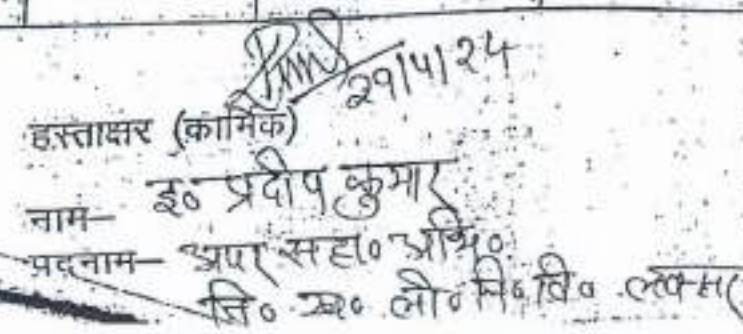 29/4/24
हस्ताक्षर (कार्मिक)
नाम- इ० प्रदीप कुमार
पदनाम- अपर सहा० अभि०
नि० ख० लो० नि० वि० लक्सर